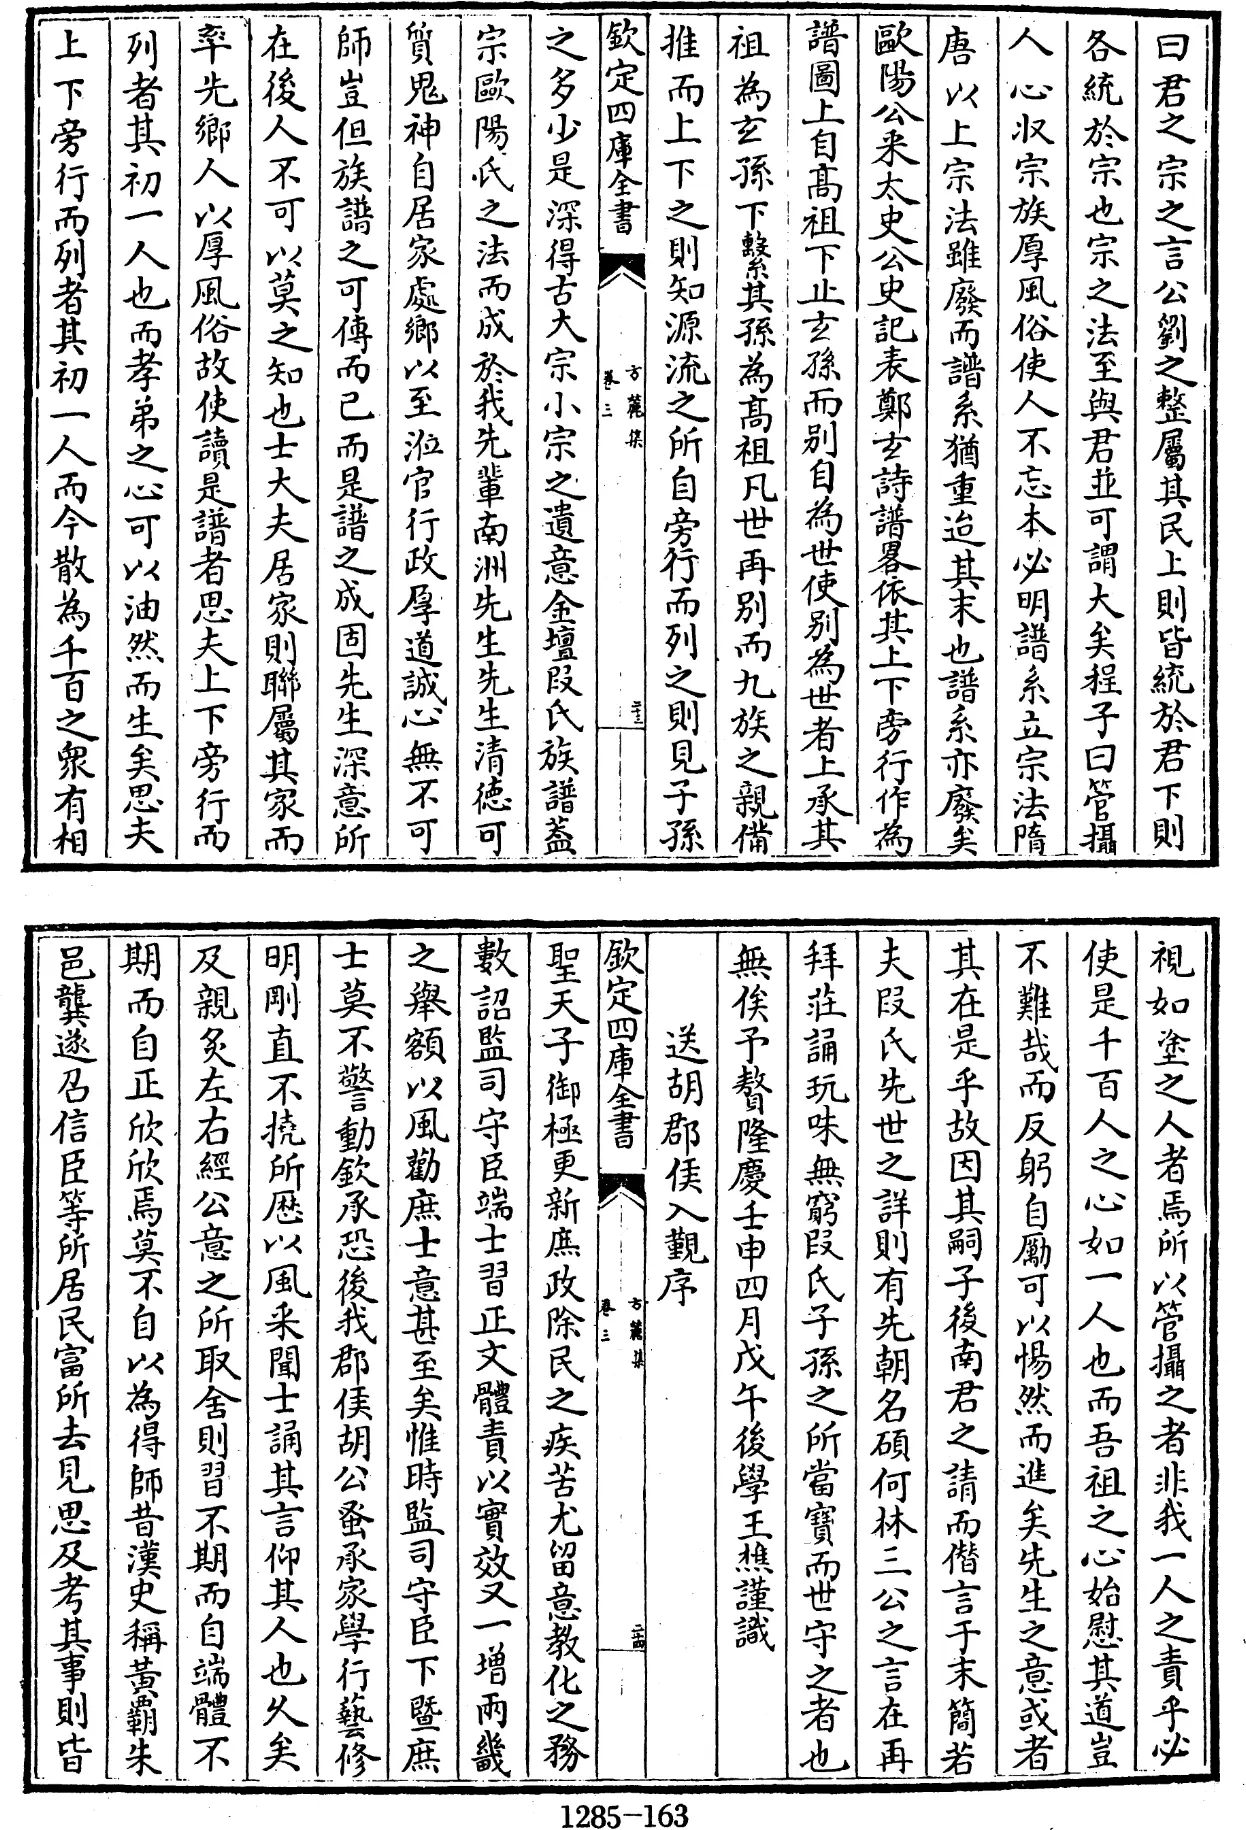 曰君之宗之言公劉之整屬其民上則皆統於君下則
各統於宗也宗之法至與君並可謂大矣程子曰管攝
人心収宗族厚風俗使人不忘本必明譜系立宗法隋
唐以上宗法雖廢而譜系猶重迨其末也譜系亦廢矣
歐陽公采太史公史記表鄭玄詩譜畧依其上下旁行作為
譜圖上自髙祖下止玄孫而别自為世使别為世者上承其
祖為玄孫下繫其孫為髙祖凡世再别而九族之親備
推而上下之則知源流之所自旁行而列之則見子孫
欽定四庫全書
方麓集
卷三
二十三
之多少是深得古大宗小宗之遺意金壇叚氏族譜葢
宗歐陽氏之法而成於我先輩南洲先生先生清德可
質鬼神自居家處鄉以至涖官行政厚道誠心無不可
師豈但族譜之可傳而已而是譜之成固先生深意所
在後人不可以莫之知也士大夫居家則聯屬其家而
率先鄉人以厚風俗故使讀是譜者思夫上下旁行而
列者其初一人也而孝弟之心可以油然而生矣思夫
上下旁行而列者其初一人而今散為千百之衆有相
視如塗之人者焉所以管攝之者非我一人之責乎必
使是千百人之心如一人也而吾祖之心始慰其道豈
不難哉而反躬自勵可以惕然而進矣先生之意或者
其在是乎故因其嗣子後南君之請而僭言于末簡若
夫叚氏先世之詳則有先朝名碩何林三公之言在再
拜莊誦玩味無窮叚氏子孫之所當寶而世守之者也
無俟予贅隆慶壬申四月戊午後學王樵謹識
送胡郡侯入覲序
欽定四庫全書
方麓集
卷三
二十四
聖天子御極更新庶政除民之疾苦尤留意教化之務
數詔監司守臣端士習正文體責以實效又一增兩畿
之舉額以風勸庶士意甚至矣惟時監司守臣下暨庶
士莫不警動欽承恐後我郡侯胡公蚤承家學行藝修
明剛直不撓所歷以風采聞士誦其言仰其人也久矣
及親炙左右經公意之所取舍則習不期而自端體不
期而自正欣欣焉莫不自以為得師昔漢史稱黄霸朱
邑龔遂召信臣等所居民富所去見思及考其事則皆
1285-163